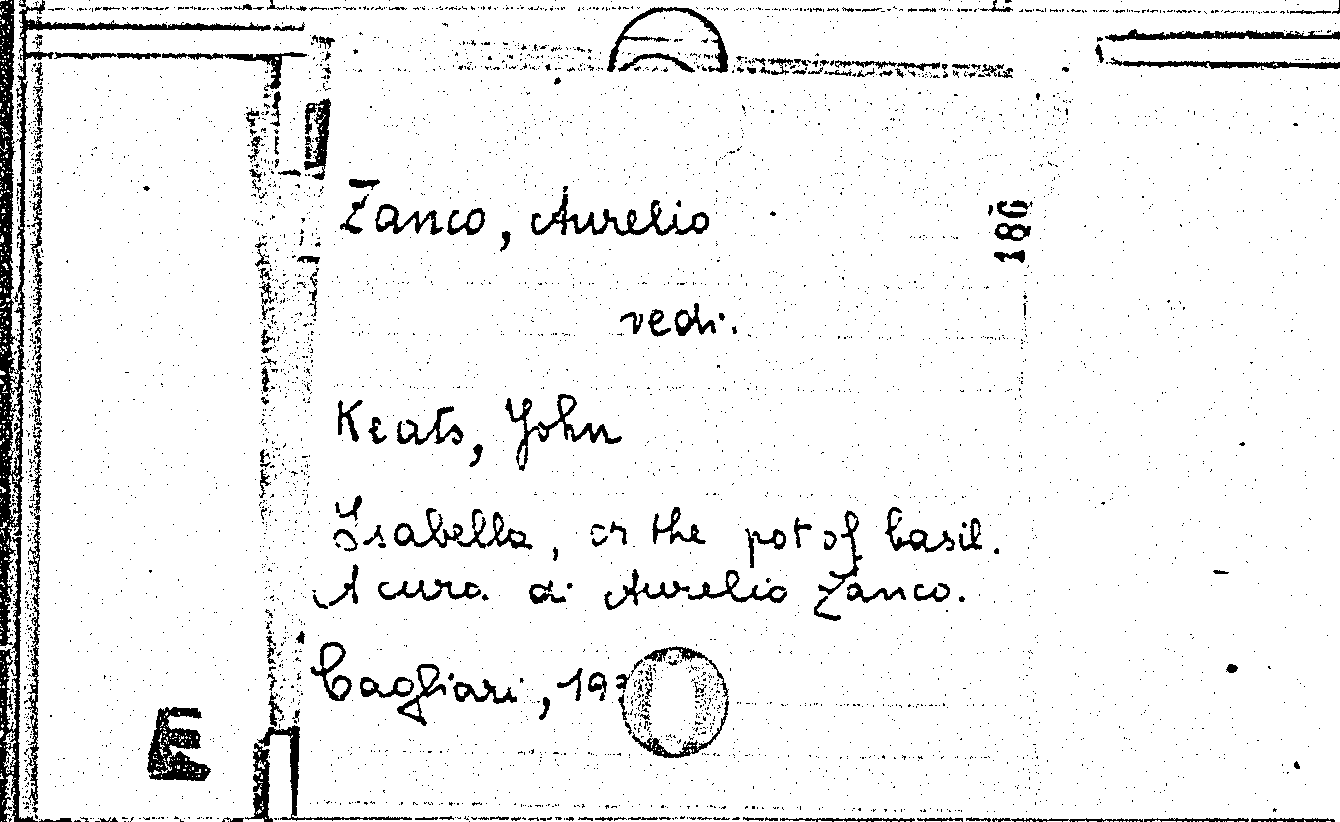 Zanco, Aurelio
186
vedi.
Keats, John
Isabella, or the pot of basil.
A cura di Aurelio Zanco.
Cagliari,